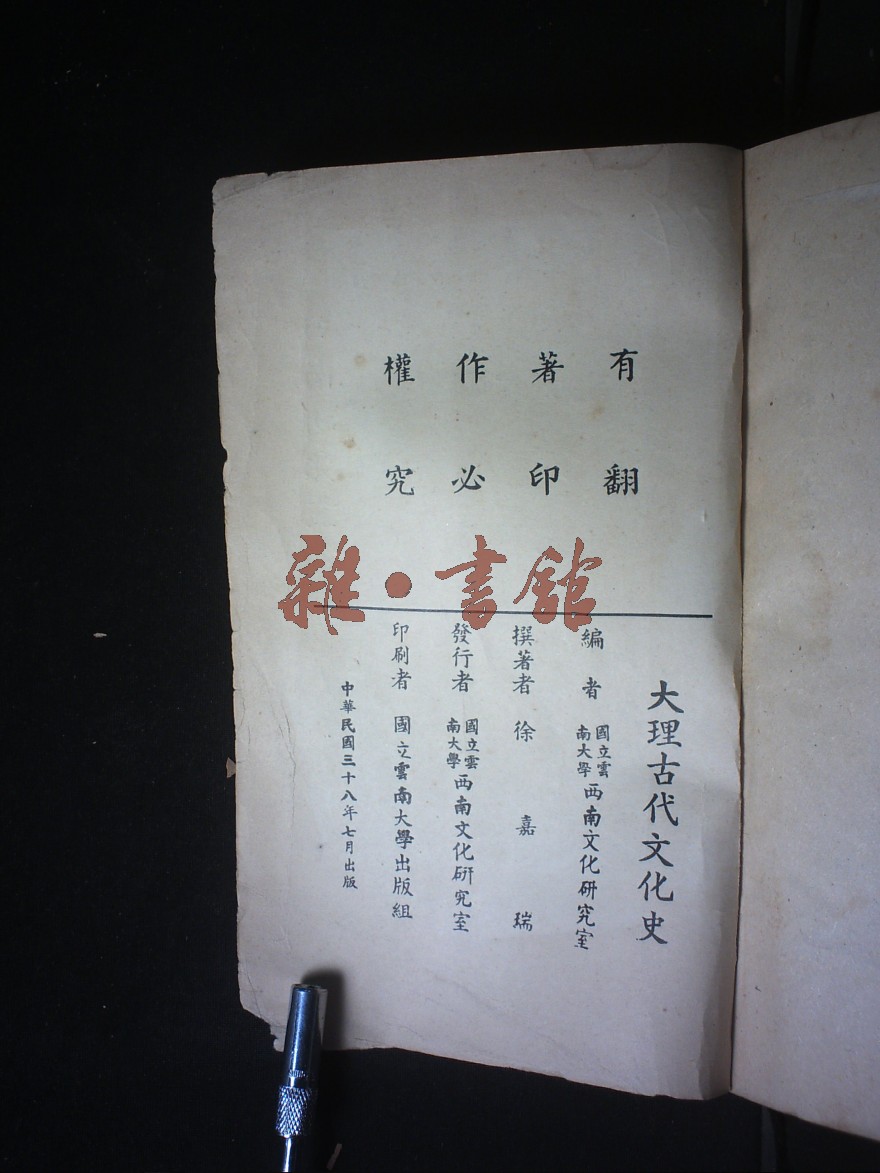 有著作權
翻印必究
大理古代文化史
編者 國立雲南大學西南文化研究室
撰著者 徐嘉瑞
發行者 國立雲南大學西南文化硏究室
印刷者 國立雲南大學出版組
中華民國三十八年七月出版
雜·書館